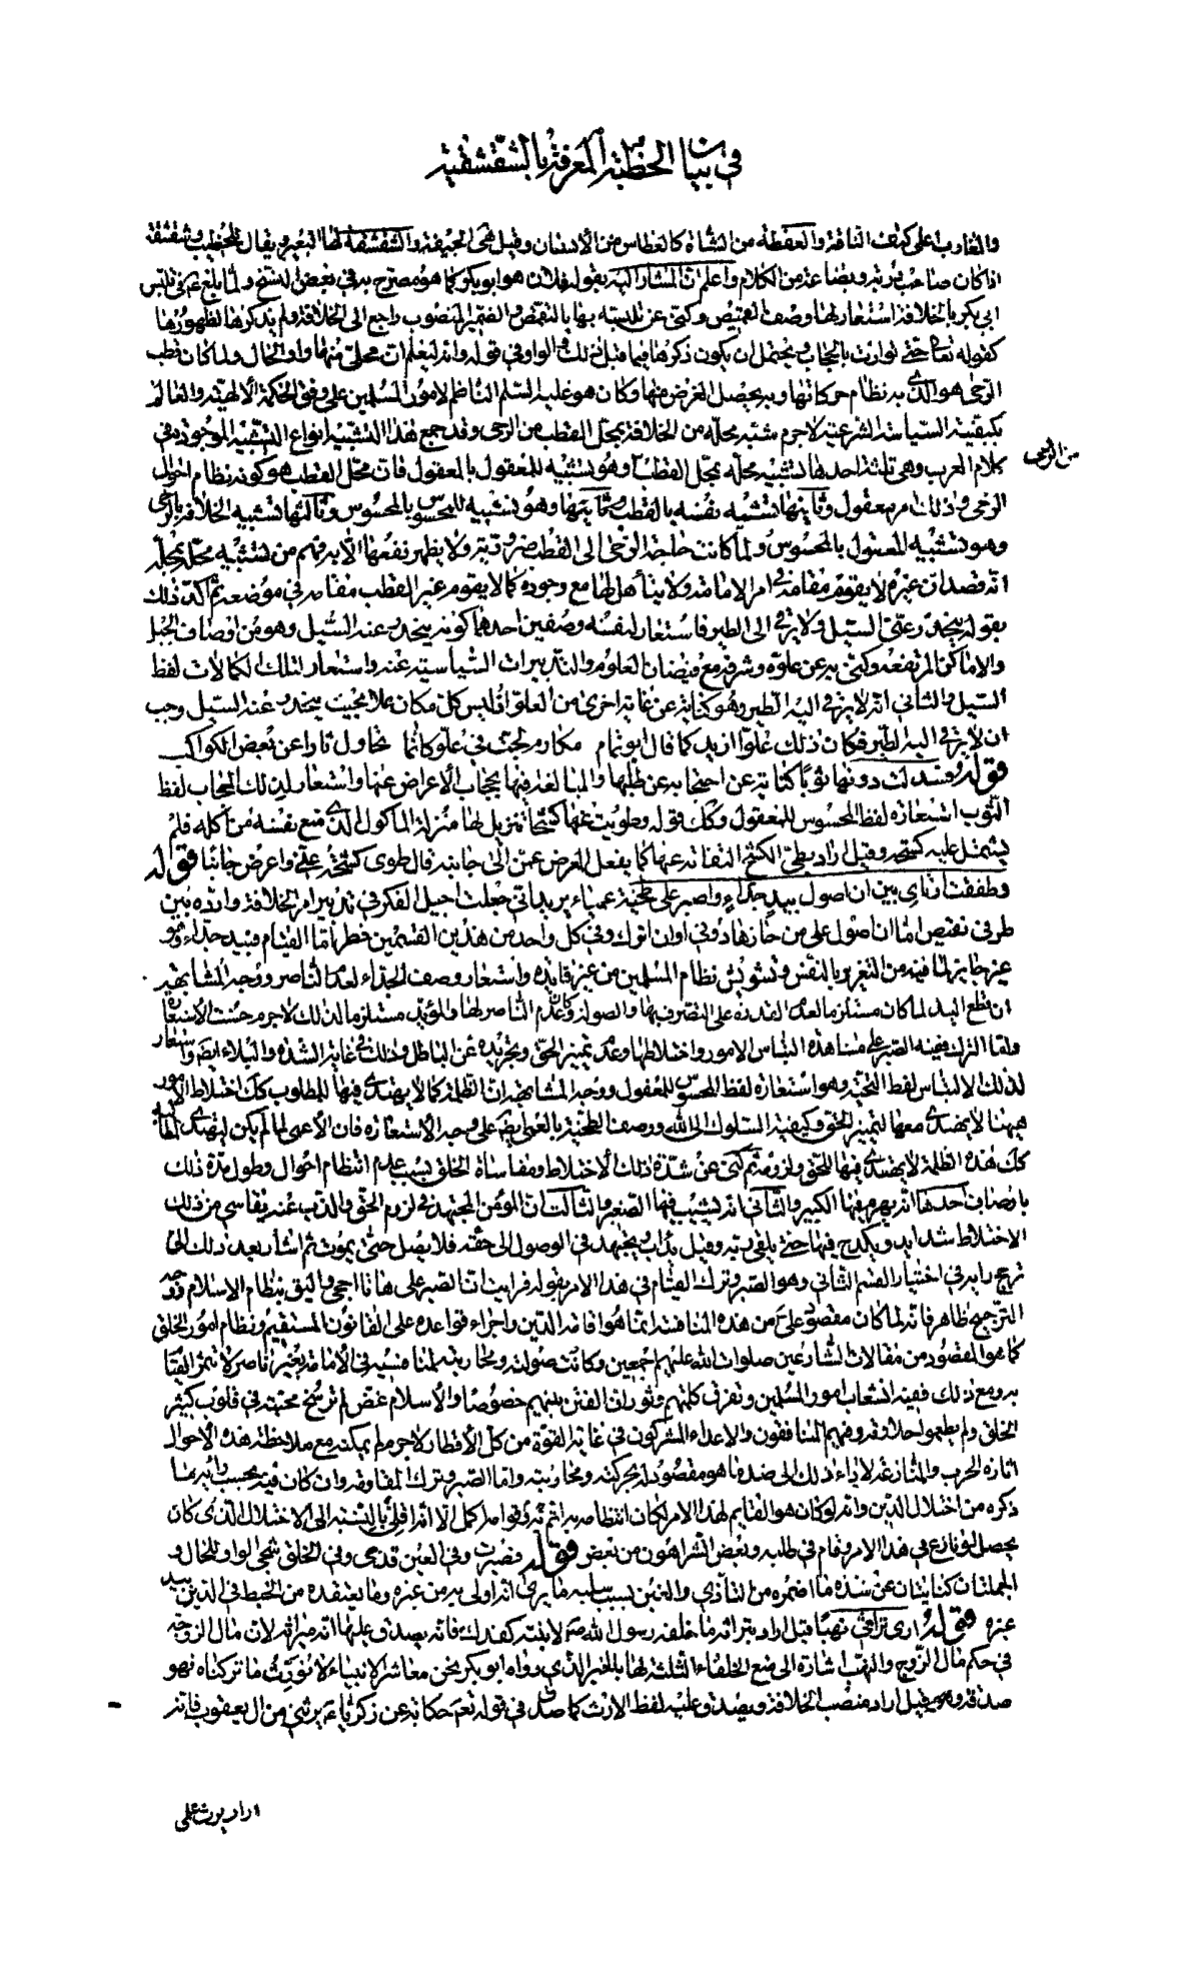 في بيان الخطبة المعرفة بالشقشقية
والغارب اعلى كتف الناقة والعفطة من الشاة كالعطاس من الانسان وقيل هى الجيفة والشقشقة لهاة البعير ويقال للخطيب شقشقة
اذا كان صاحب دربة وبضاعة من الكلام واعلم ان المشار اليه بقوله فلان هو ابو بكر كما هو مصرح به في بعض النسخ ولما بلغ في تلبس
ابي بكر بالخلافة استعار لها وصف القميص وكنى عن تلبسه بها بالتقمص والضمير المنصوب راجع الى الخلافة ولم يذكرها لظهورها
كقوله تعالى حتى توارت بالحجاب ويحتمل ان يكون ذكرها فيما قبل ذلك والواو في قوله وانه ليعلم ان محلي منها واو الحال ولما كان قطب
الرحى هو الذي به نظام حركاتها وبه يحصل الغرض منها وكان هو عليه السلم الناظم لامور المسلمين على وفق الحكمة الالهية والعالم
بكيفية السياسة الشرعية لاجرم شبه محله من الخلافة بمحل القطب من الرحى وقد جمع هذا التشبيه انواع التشبيه الموجودة في
من الرحى
كلام العرب وهي ثلثة احدها تشبيه محله بمحل القطب وهو تشبيه للمعقول بالمعقول فان محل القطب هو كونه نظام احوال
الرحى وذلك امر معقول وثانيها تشبيه نفسه بالقطب وهو تشبيه للمحسوس بالمحسوس وثالثها تشبيه الخلافة بالرحى
وهو تشبيه المعقول بالمحسوس ولما كانت حاجة الرحى الى القطب ضرورية ولا يظهر نفعها الا به فهم من تشبيه محله بمحله
انه قصد ان غيره لا يقوم مقامه في امر الامامة ولا يتأهل لها مع وجوده كما لا يقوم غير القطب مقامه في موضعه ثم اكد ذلك
بقوله ينحدر عني السيل ولا يرقى الى الطير فاستعار لنفسه وصفين احدهما كونه ينحدر عنه السيل وهو من اوصاف الجبل
والاماكن المرتفعة وكنى به عن علوه وشرفه مع فيضان العلوم والتدبيرات السياسية عنه واستعار لتلك الكمالات لفظ
السيل والثاني انه لا يرقى اليه الطير وهو كناية عن غاية اخرى من العلو اذ ليس كل مكان علا بحيث ينحدر عنه السيل وجب
ان لا يرقى اليه الطير فكان ذلك علوا ازيد كما قال ابو تمام مكارم لجت في علو كانما تحاول ثارا عن بعض الكواكب
قوله فسدلت دونها ثوبا كناية عن احتجابه عن طلبها والمبالغة فيها بحجاب الاعراض عنها واستعار لذلك الحجاب لفظ
الثوب استعارة لفظ المحسوس للمعقول وكك قوله وطويت عنها كشحا تنزيل لها منزلة الماكول الذي منع نفسه من اكله فلم
يشتمل عليه كشحه وقيل اراد بطي الكشح التفاته عنها كما يفعل المعرض عمن الى جانبه قال طوى كشحه عني واعرض جانبا قوله
وطفقت ارتاي بين ان اصول بيد جذاء او اصبر على طخية عمياء يريد اني جعلت اجيل الفكر في تدبير امر الخلافة واردده بين
طرفي نقيض اما ان اصول على من حازها دوني او ان اترك وفي كل واحد من هذين القسمين خطر اما القيام فبيد جذاء وهو
غير جايز لما فيه من التغرير بالنفس وتشويش نظام المسلمين من غير فايدة واستعار وصف الجذاء لعدم الناصر ووجه المشابهة
ان قطع اليد لما كان مستلزما لعدم القدرة على التصرف بها والصولة وكان عدم الناصر لها والمؤيد مستلزما لذلك لاجرم حسنت الاستعارة
واما الترك ففيه الصبر على مشاهدة التباس الامور واختلاطها وعدم تمييز الحق وتجريده عن الباطل وذلك في غاية الشدة والبلاء ايضا واستعار
لذلك الالتباس لفظ الطخية وهو استعارة لفظ المحسوس للمعقول ووجه المشابهة ان الظلمة كما لا يهتدى فيها للمطلوب كك اختلاط الامور
هيهنا لا يهتدى معها لتمييز الحق وكيفية السلوك الى الله ووصف الطخية بالعمى ايضا على وجه الاستعارة فان الاعمى لما لم يكن ليهتدى لمطالبه
كك هذه الظلمة لا يهتدى فيها للحق ولزومه ثم كنى عن شدة ذلك الاختلاط ومقاساة الخلق بسبب عدم انتظام احوال وطول مدة ذلك
باوصاف احدها انه يهرم فيها الكبير والثاني انه يشيب فيها الصغير والثالث ان المؤمن المجتهد في لزوم الحق والذب عنه يقاسي من ذلك
الاختلاط شدايد ويكدح فيها حتى يلقى ربه وقيل يداب ويجتهد في الوصول الى حقه فلا يصل حتى يموت ثم اشار بعد ذلك الى
ترجيح رايه في اختيار القسم الثاني وهو الصبر وترك القيام في هذا الامر بقوله فرايت ان الصبر على هاتا احجى واليق بنظام الاسلام ووجه
الترجيح ظاهر فانه لما كان مقصود علي ع من هذه المنافسة انما هو اقامة الدين واجراء قواعده على القانون المستقيم ونظام امور الخلق
كما هو المقصود من مقالات الشارعين صلوات الله عليهم اجمعين وكانت صولته ومحاربته لمنافسيه في الامامة بغير ناصر لا تثمر القيام
به ومع ذلك ففيه انشعاب امور المسلمين وتفرق كلمتهم وثوران الفتن بينهم خصوصا والاسلام غض لم ترسخ محبته في قلوب كثير
الخلق ولم يطعموا حلاوته وفيهم المنافقون والاعداء المشركون في غاية القوة من كل الاقطار لاجرم لم يمكنه مع ملاحظة هذه الاحوال
اثارة الحرب والمنازعة لاداء ذلك الى ضد ما هو مقصود له بحركته ومحاربته واما الصبر وترك المقاومة وان كان فيه بحسب رايه ما
ذكره من اختلال الدين وانه لو كان هو القايم لهذا الامر لكان انتظامه به اتم وقوامه اكمل الا انه اقل بالنسبة الى الاختلال الذى كان
يحصل لو نازع في هذا الامر وقام في طلبه وبعض الشر اهون من بعض قوله فصبرت وفي العين قذى وفي الحلق شجى الواو للحال و
الجملتان كنايتان عن شدة ما اضمره من التاذي والغبن بسبب سلبه ما يرى انه اولى به من غيره وما يعتقده من الخبط في الدين بيد
غيره قوله ارى تراثي نهبا قيل اراد بتراثه ما خلفه رسول الله ص لابنته كفدك فانه يصدق عليها انه ميراثه لان مال الزوجة
في حكم مال الزوج والنهب اشارة الى منع الخلفاء الثلثة لها بالخبر الذي رواه ابو بكر نحن معاشر الانبياء لا نورث ما تركناه فهو
صدقة وقيل اراد منصب الخلافة ويصدق عليه لفظ الارث كما صدق في قوله تعم حكاية عن زكريا ع يرثني من ال يعقوب فانه
اراد يرث علمى